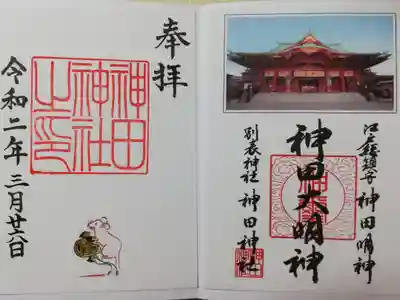 江戸總鎮守 神田明神
神田大明神
別表神社 神田神社
奉拝
神田
神社
之印
令和二年 三月廿六日